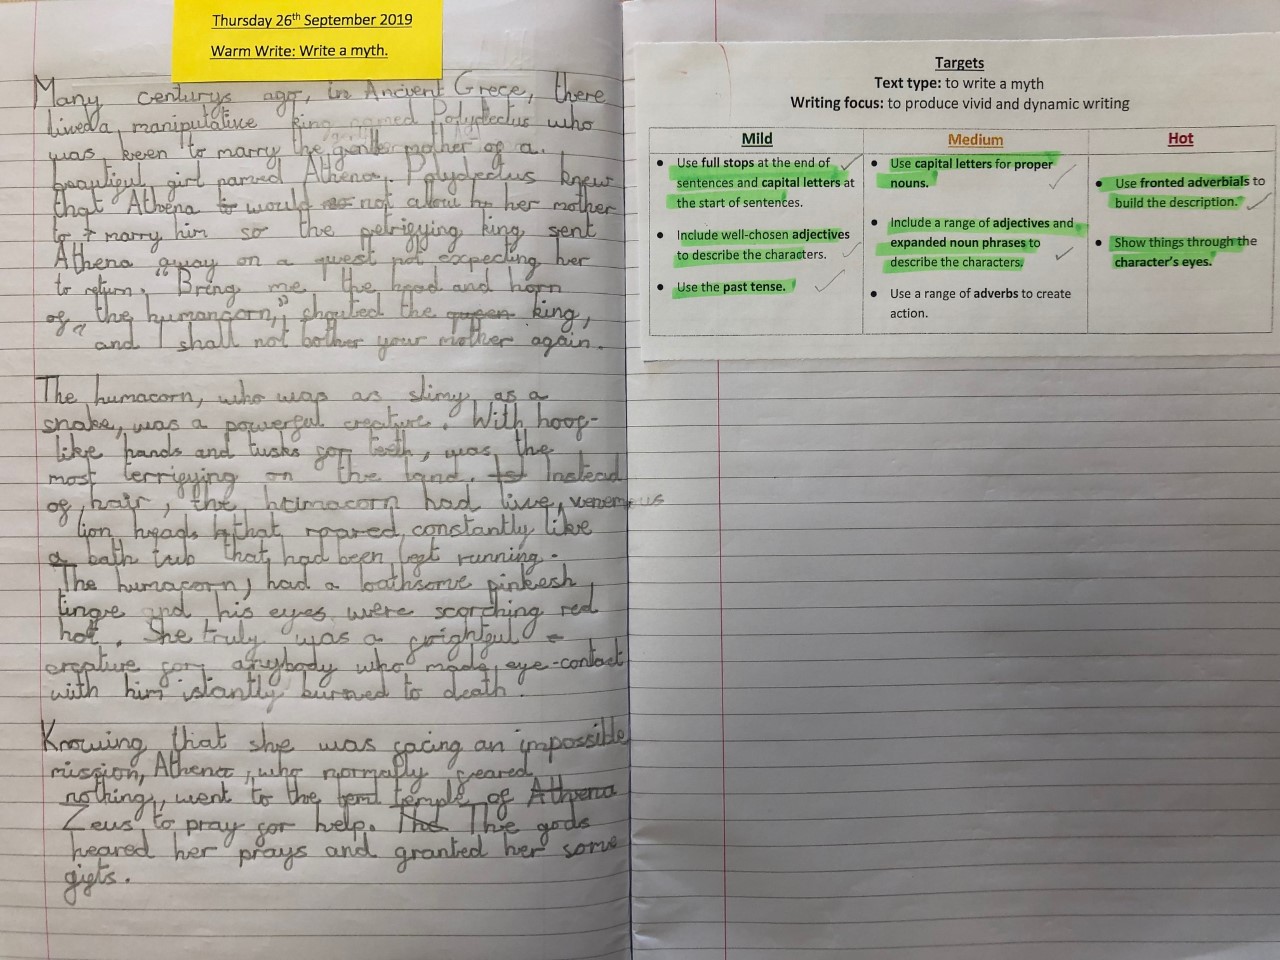 Thursday 26th September 2019
Warm Write: Write a myth.
Many centurys ago, in Ancient Grece, there
lived a manipulative king named Polydectus who
was keen to marry the gentle mother of a
beautiful girl named Athena. Polydectus knew
that Athena would not allow her mother
to marry him so the petrifying king sent
Athena away on a quest not expecting her
to return. "Bring me the head and horn
of the humancorn," shouted the queen king,
"and I shall not bother your mother again.
The humacorn, who was as slimy as a
snake, was a powerful creature. With hoof-
like hands and tusks for teeth, was the
most terrifying on the land. Instead
of hair, the humacorn had live, venemous
lion heads that roared constantly like
a bath tub that had been left running.
The humacorn, had a loathsome pinkesh
tinge and his eyes were scorching red
hot. She truly was a frightful
creature for anybody who made eye-contact
with him istantly burned to death.
Knowing that she was facing an impossible
mission, Athena, who normally feared
nothing, went to the temple of Athena
Zeus to pray for help. The The gods
heared her prays and granted her some
gifts.
Targets
Text type: to write a myth
Writing focus: to produce vivid and dynamic writing
Mild
• Use full stops at the end of
sentences and capital letters at
the start of sentences.
• Include well-chosen adjectives
to describe the characters.
• Use the past tense.
Medium
• Use capital letters for proper
nouns.
• Include a range of adjectives and
expanded noun phrases to
describe the characters.
• Use a range of adverbs to create
action.
Hot
• Use fronted adverbials to
build the description.
• Show things through the
character's eyes.